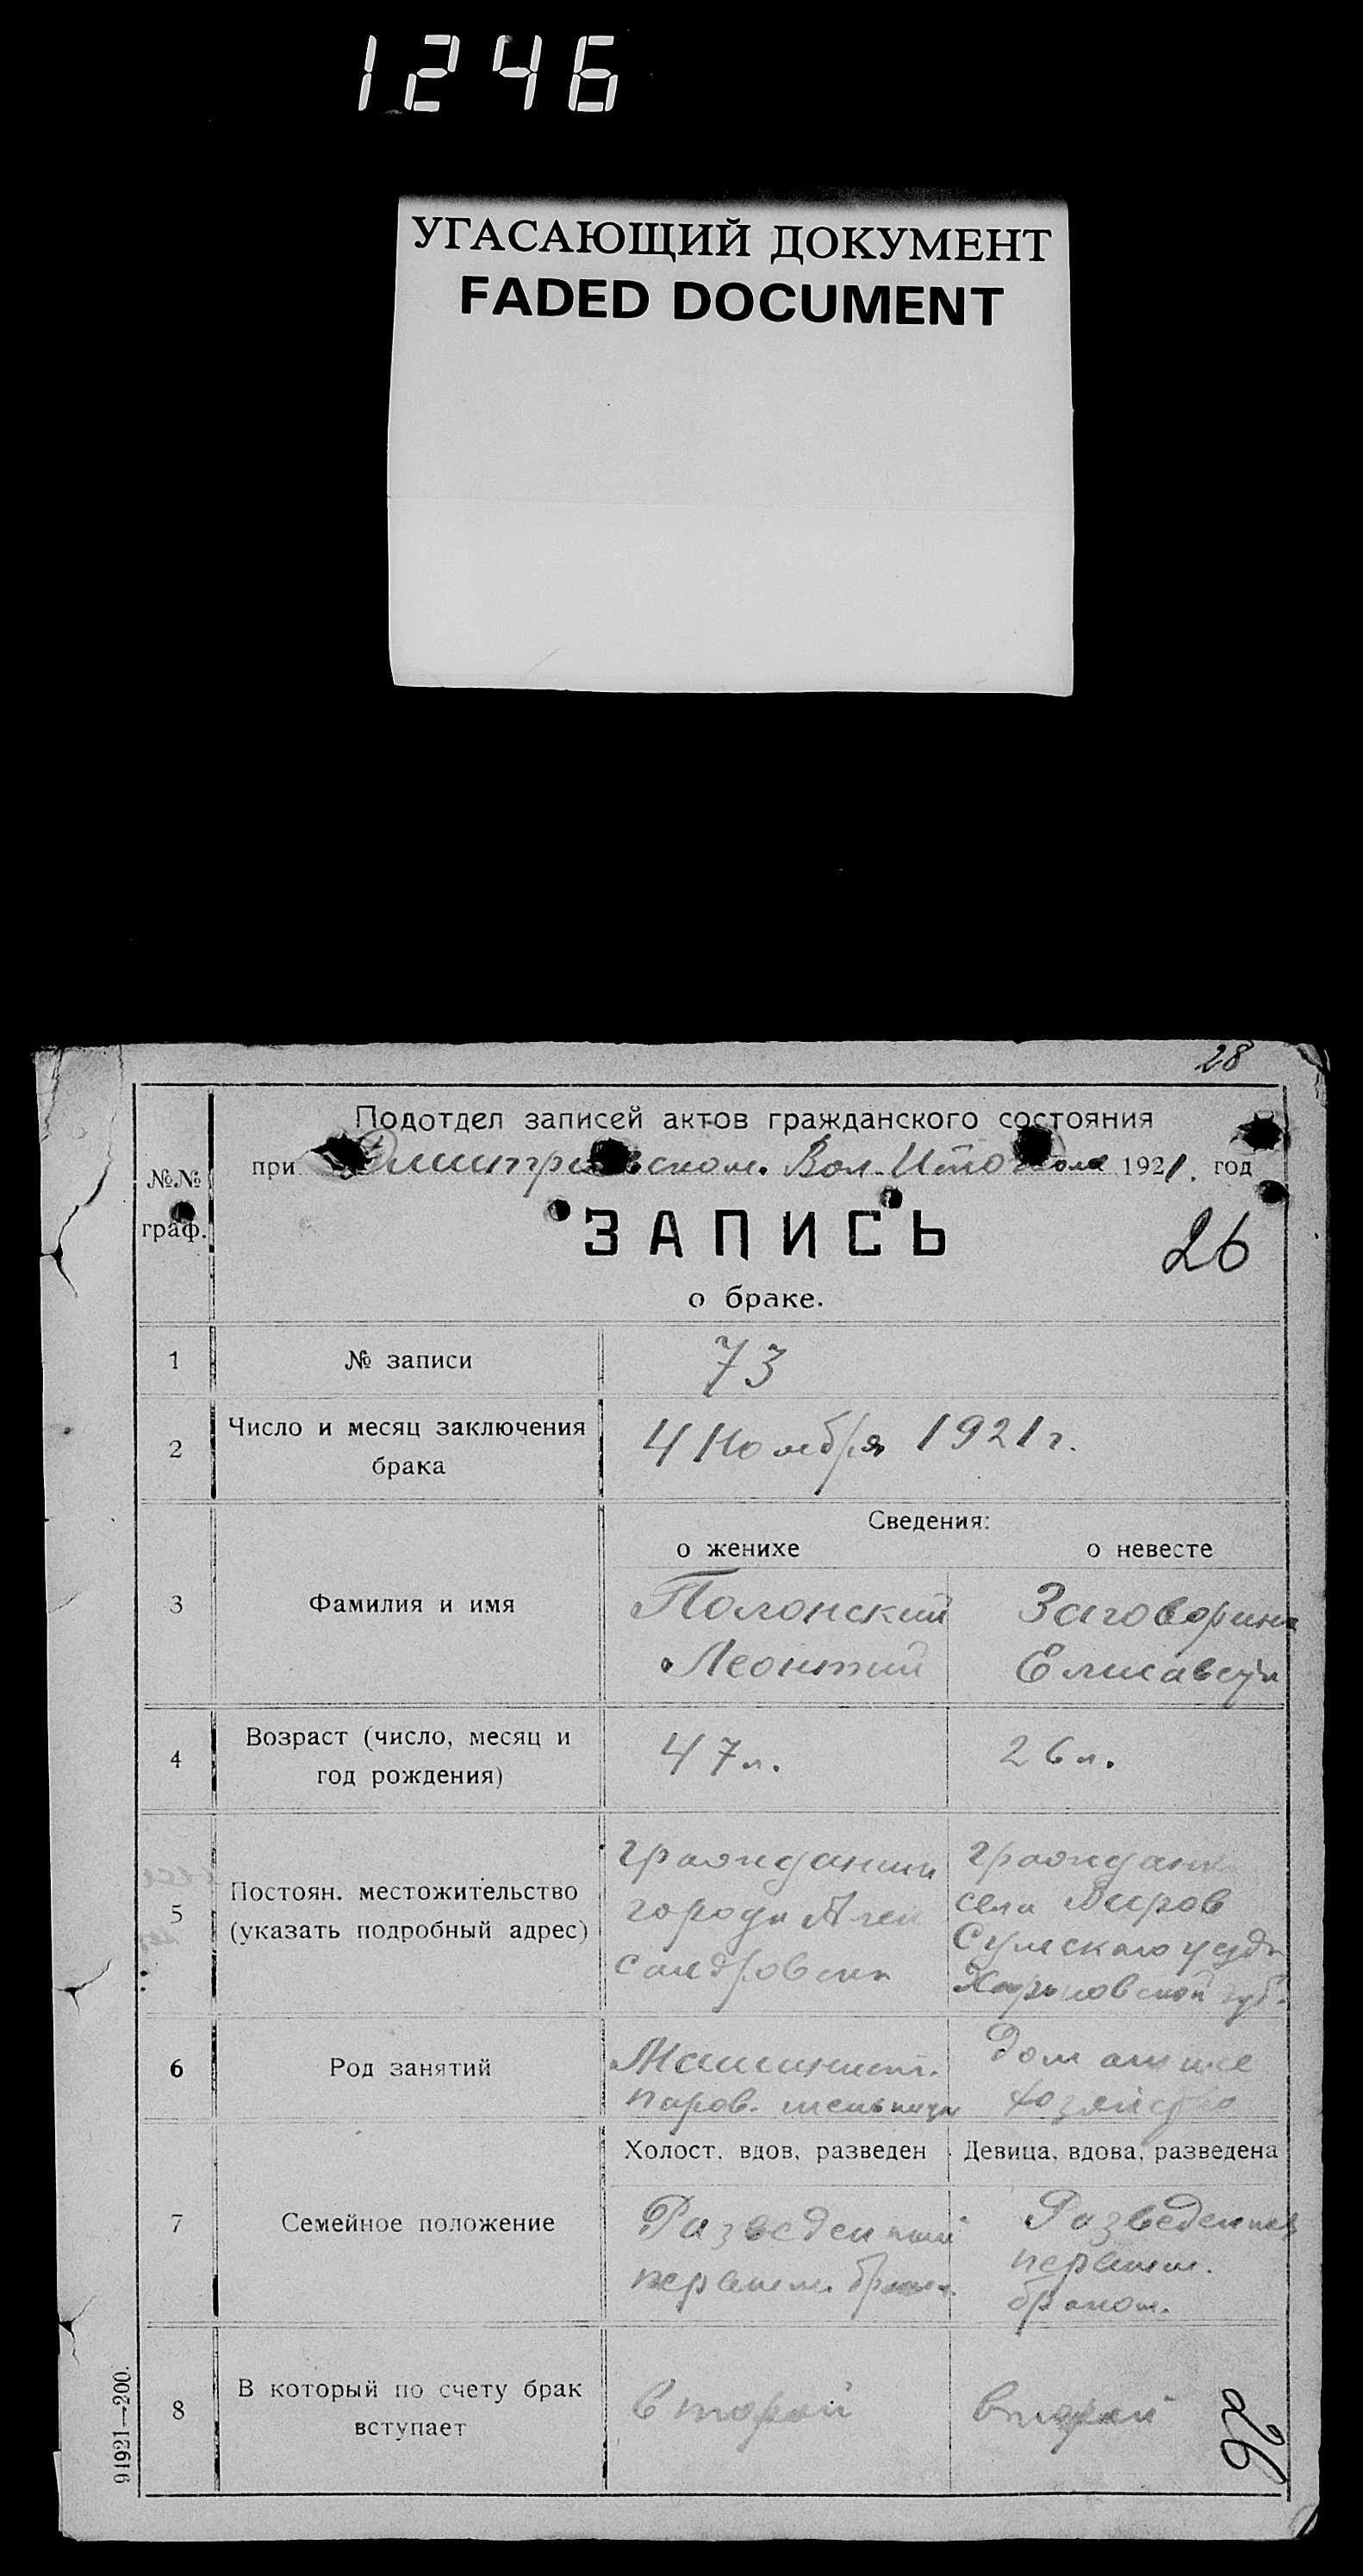 1246
УГАСАЮЩИЙ ДОКУМЕНТ
FADED DOCUMENT
28
Подотдел записей актов гражданского состояния
при Вол. 1921. год
№№ граф.
ЗАПИСЬ
26
о браке.
1 № записи 73
2 Число и месяц заключения брака 4 Ноября 1921 г.
Сведения:
о женихе о невесте
3 Фамилия и имя Полонский Заговорина
Леонтий Елисавета
4 Возраст (число, месяц и год рождения) 47 л. 26 л.
5 Постоян. местожительство (указать подробный адрес)
гражданин
города Алек
сандровска
гражданка
села
Сумского уезда
Харьковской губ.
6 Род занятий
Машинист.
паров. мельницы
домашнее
хозяйство
Холост, вдов, разведен Девица, вдова, разведена
7 Семейное положение
Разведенный
первым браком.
Разведенная
первым.
браком.
8 В который по счету брак вступает второй второй
26
91921—200.